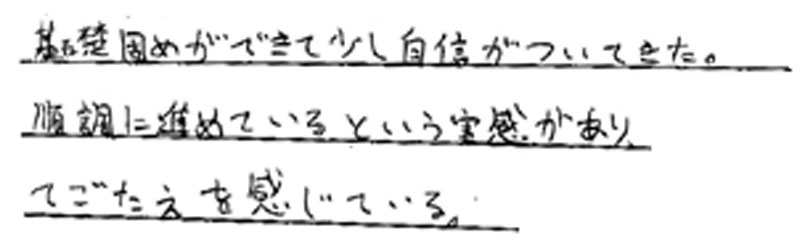 基礎固めができて少し自信がついてきた。
順調に進めているという実感があり、
てごたえを感じている。